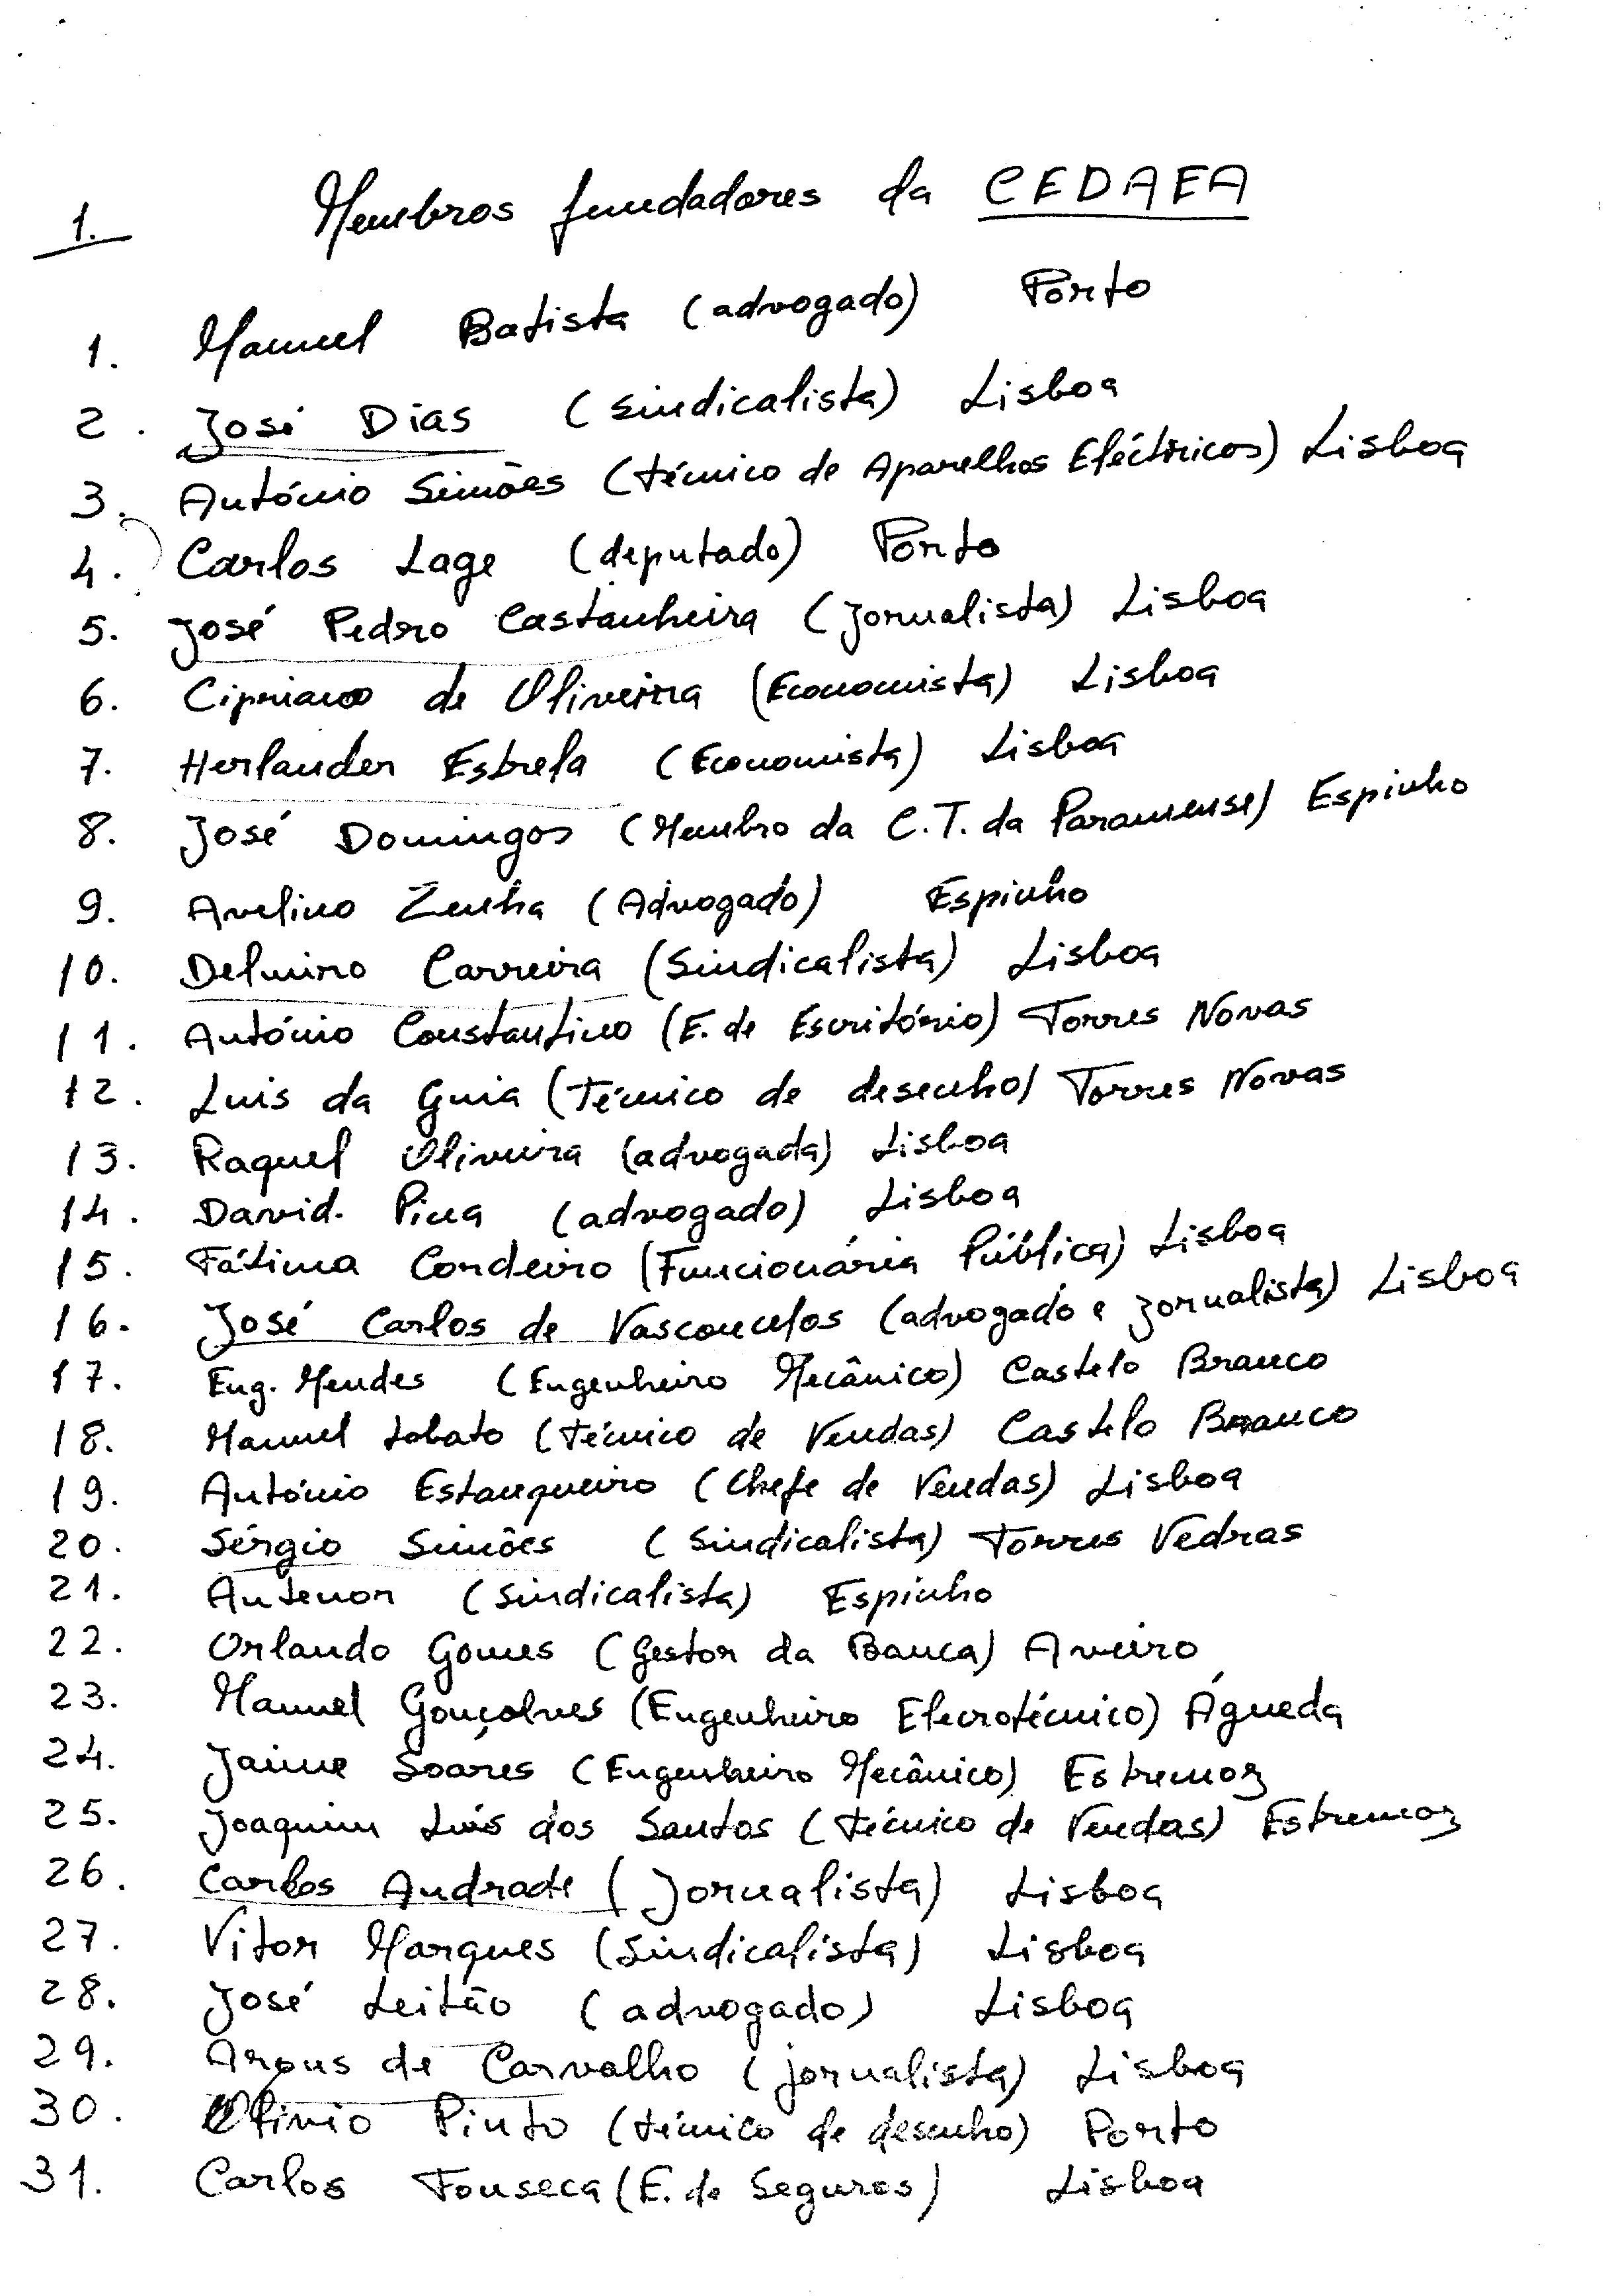 1. Membros fundadores da CEDAEA
1. Manuel Batista (advogado) Porto
2. José Dias (sindicalista) Lisboa
3. António Simões (técnico de Aparelhos Eléctricos) Lisboa
4. Carlos Lage (deputado) Porto
5. José Pedro Castanheira (jornalista) Lisboa
6. Cipriano de Oliveira (Economista) Lisboa
7. Herlander Estrela (Economista) Lisboa
8. José Domingos (Membro da C.T. da Paramense) Espinho
9. Avelino Zenha (Advogado) Espinho
10. Delmiro Carreira (Sindicalista) Lisboa
11. António Constantino (E. de Escritório) Torres Novas
12. Luis da Guia (Técnico de desenho) Torres Novas
13. Raquel Oliveira (advogada) Lisboa
14. David. Pina (advogado) Lisboa
15. Fátima Cordeiro (Funcionária Pública) Lisboa
16. José Carlos de Vasconcelos (advogado e jornalista) Lisboa
17. Eng. Mendes (Engenheiro Mecânico) Castelo Branco
18. Manuel Lobato (técnico de Vendas) Castelo Branco
19. António Estanqueiro (Chefe de Vendas) Lisboa
20. Sérgio Simões (Sindicalista) Torres Vedras
21. Antenor (sindicalista) Espinho
22. Orlando Gomes (Gestor da Banca) Aveiro
23. Manuel Gonçalves (Engenheiro Elecrotécnico) Águeda
24. Jaime Soares (Engenheiro Mecânico) Estremoz
25. Joaquim Luís dos Santos (técnico de Vendas) Estremoz
26. Carlos Andrade (Jornalista) Lisboa
27. Vitor Marques (sindicalista) Lisboa
28. José Leitão (advogado) Lisboa
29. Arons de Carvalho (jornalista) Lisboa
30. Olívio Pinto (técnico de desenho) Porto
31. Carlos Fonseca (E. de Seguros) Lisboa